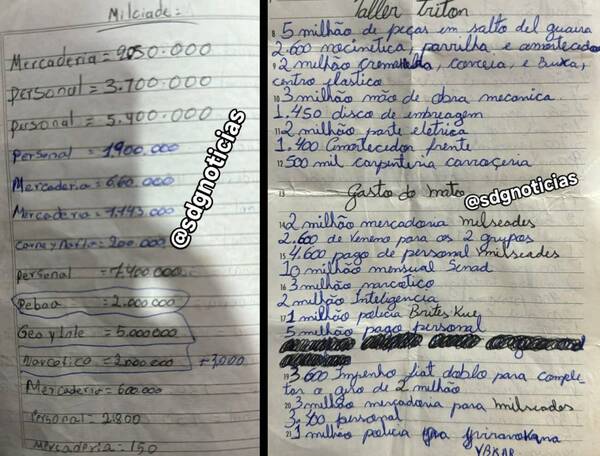 Milciade:
Mercaderia = 2050.000
Personal = 3.700.000
Personal = 5.400.000
Personal = 1900.000
Mercaderia = 660.000
Mercaderia = 1.143.000
Carne y = 200.000
Personal = 1.400.000
= 2.000.000
Geo y Inte = 5.000.000
Narcotico = 2.000.000
Mercaderia = 600.000
Personal = 2.800
Mercaderia = 150
@sdgnoticias
Taller Triton
8 5 milhão de peças em salto del guaira
2.600 parrilha, e amortecedor
9 2 milhão e Buxa,
centro elastico
10 3 milhão mão de obra mecanica
1.450 disco de embreagem
11 2 milhão parte eletrica
1.400 amortecedor frente
12 500 mil carpenteria carroçeria
13 Gasto do mato
@sdgnoticias
14 2 milhão mercadoria milseades
2.600 de Veneno para os 2 grupos
15 4.600 pago de personal milseades
10 milhão mensual Senad
16 3 milhão narcotico
2 milhão Inteligencia
17 1 milhão policia Brites Kue
5 milhão pago personal
19 3.600 Impenho fiat doblo para comple
tar o giro de 2 milhão
20 3 milhão mercadoria para milseades
3.700 personal
21 1 milhão policia